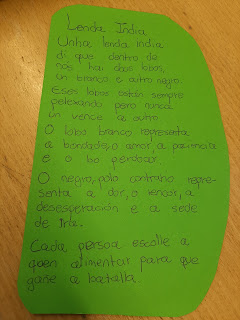 Lenda India
Unha lenda india
di que dentro de
nós hai dous lobos,
un branco e outro negro.
Eses lobos están sempre
pelexando pero nunca
un vence a outro.
O lobo branco representa
a bondade, o amor, a paciencia
e o bo perdoar.
O negro, polo contrario repre-
senta a dor, o rencor, a
desesperación e a sede
de
Cada persoa escolle a
quen alimentar para que
gañe a batalla.